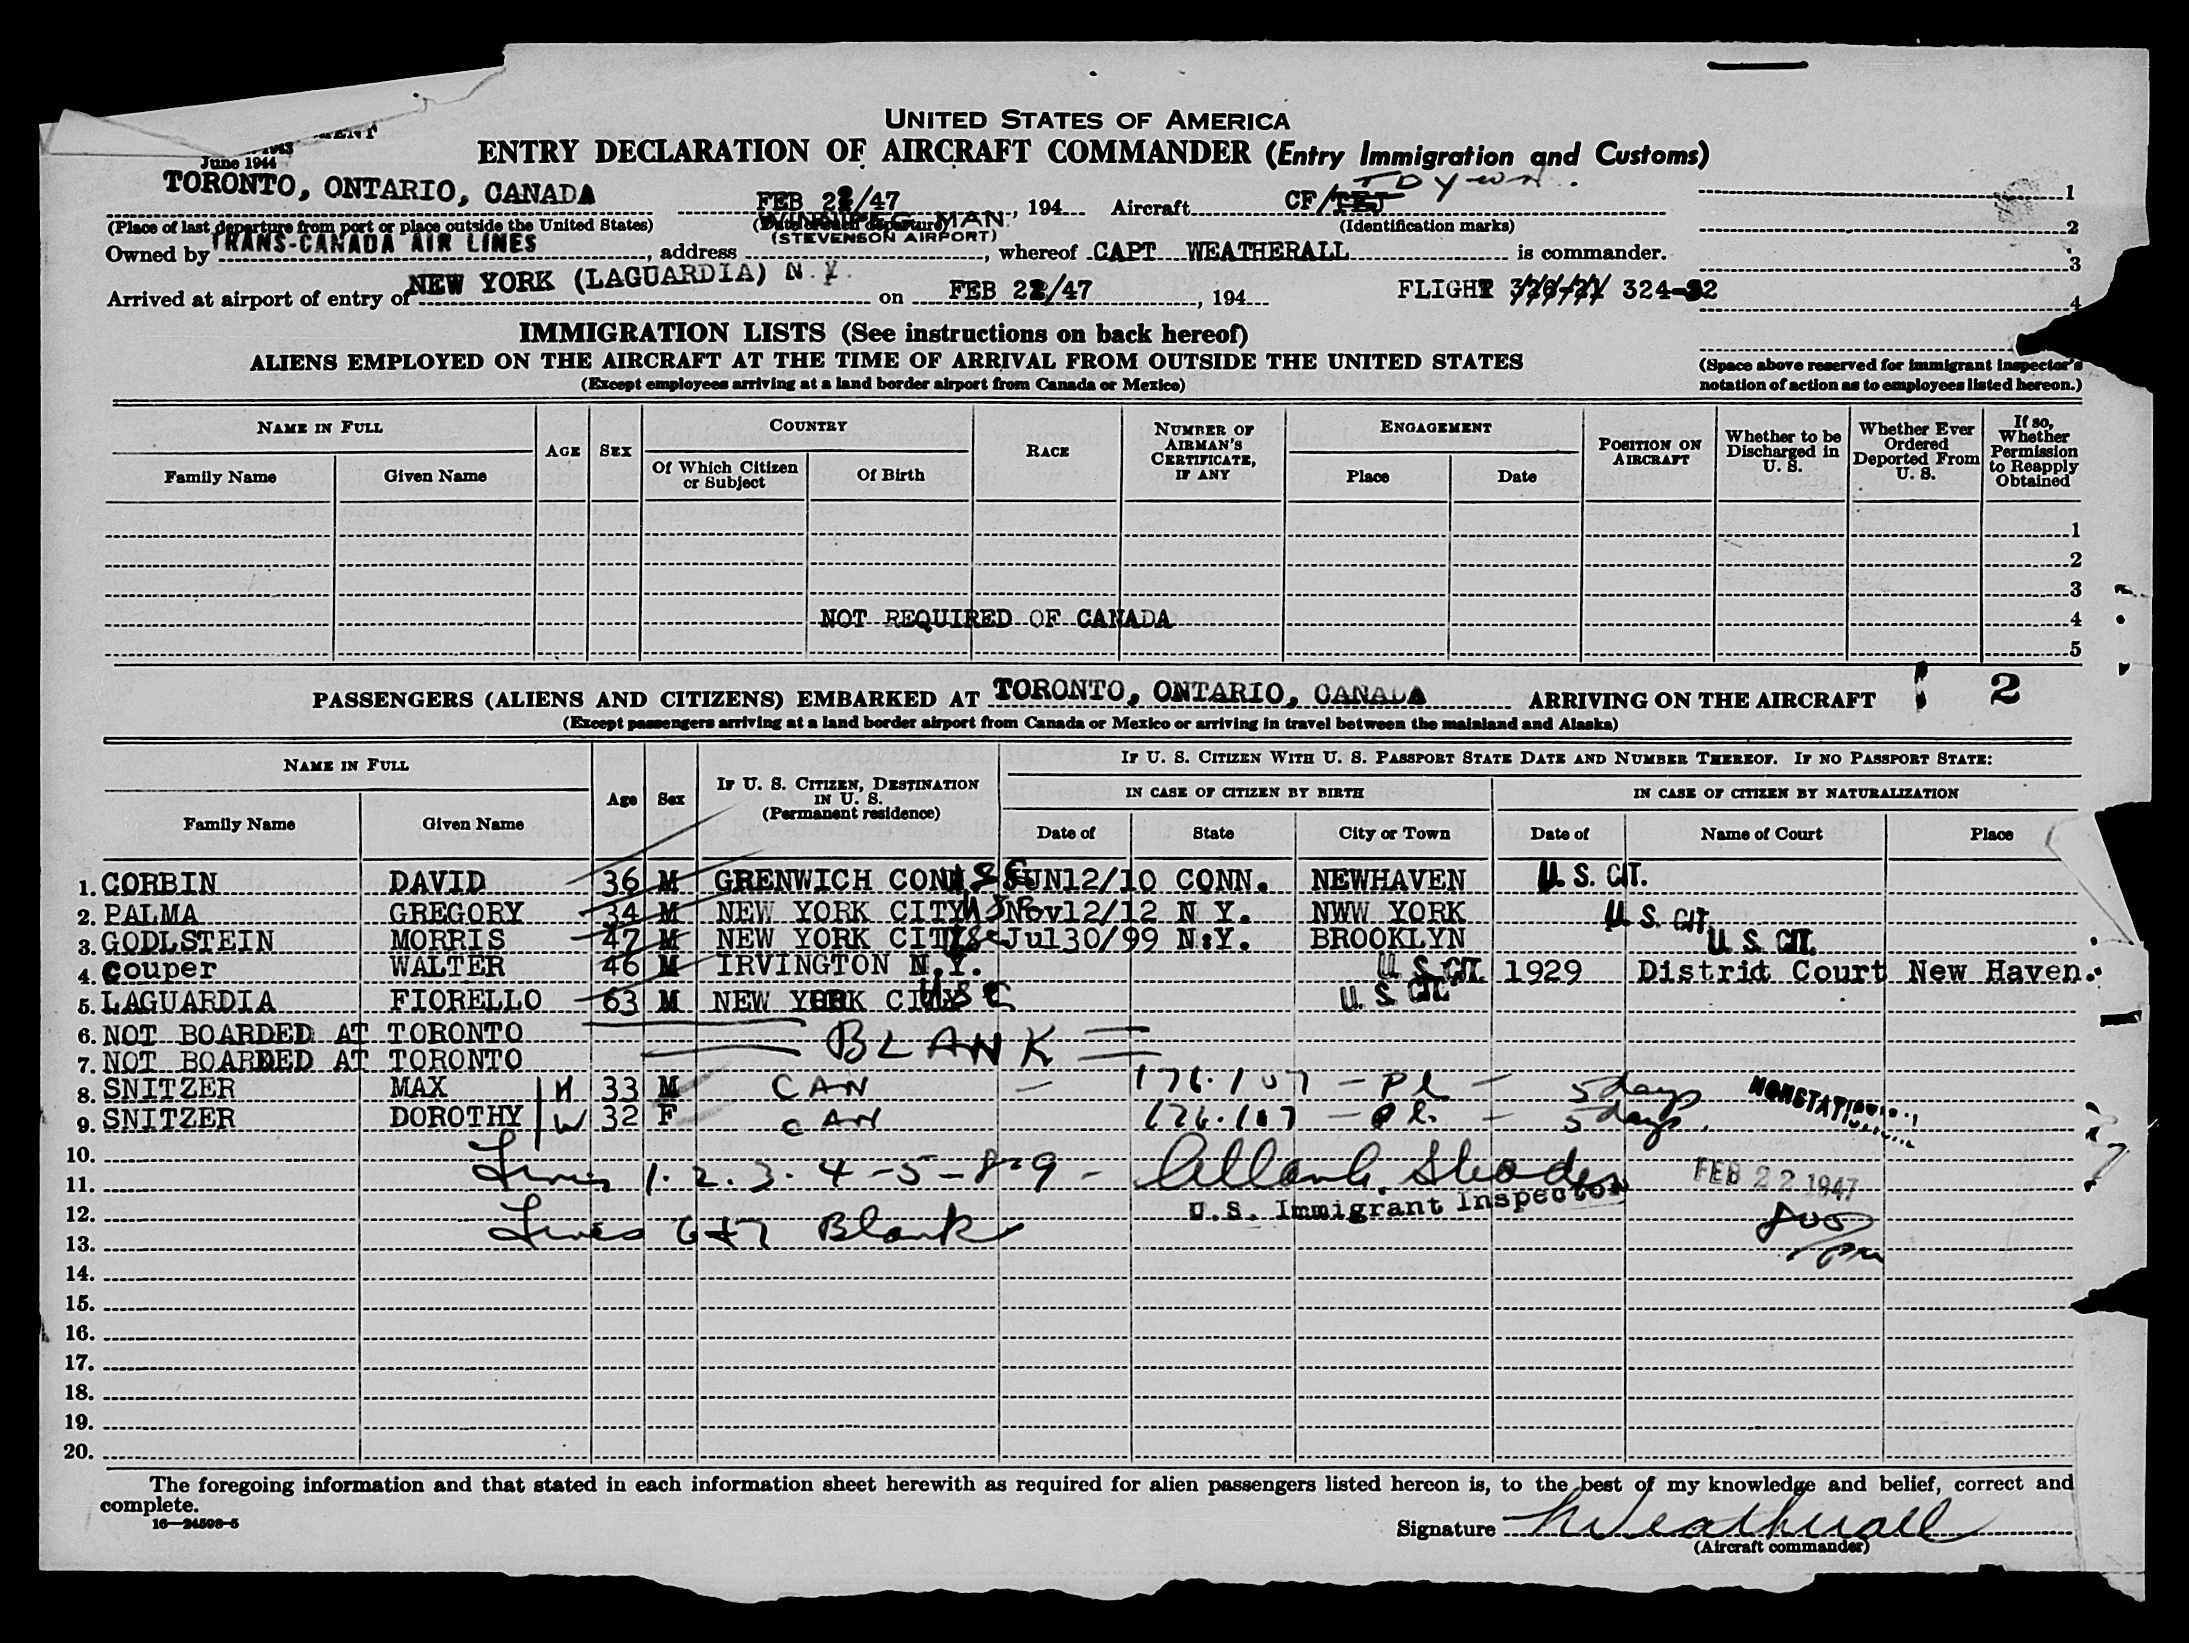 UNITED STATES OF AMERICA
ENTRY DECLARATION OF AIRCRAFT COMMANDER (Entry Immigration and Customs)
June 1944
TORONTO, ONTARIO, CANADA FEB 22/47, 194 Aircraft CF/ 1
(Place of last departure from port or place outside the United States) (Identification marks) 2
WINNIPEG MAN.
(STEVENSON AIRPORT)
Owned by TRANS-CANADA AIR LINES, address, whereof CAPT WEATHERALL is commander. 3
Arrived at airport of entry of NEW YORK (LAGUARDIA) N.Y. on FEB 22/47, 194 FLIGHT 324-22 4
IMMIGRATION LISTS (See instructions on back hereof)
ALIENS EMPLOYED ON THE AIRCRAFT AT THE TIME OF ARRIVAL FROM OUTSIDE THE UNITED STATES
(Except employees arriving at a land border airport from Canada or Mexico)
(Space above reserved for immigrant inspector's
notation of action as to employees listed hereon.)
NAME IN FULL
Family Name Given Name
AGE SEX
COUNTRY
Of Which Citizen or Subject Of Birth
RACE
NUMBER OF AIRMAN'S CERTIFICATE, IF ANY
ENGAGEMENT
Place Date
POSITION ON AIRCRAFT
Whether to be Discharged in U. S.
Whether Ever Ordered Deported From U. S.
If so, Whether Permission to Reapply Obtained
1
2
3
NOT REQUIRED OF CANADA 4
5
PASSENGERS (ALIENS AND CITIZENS) EMBARKED AT TORONTO, ONTARIO, CANADA ARRIVING ON THE AIRCRAFT 2
(Except passengers arriving at a land border airport from Canada or Mexico or arriving in travel between the mainland and Alaska)
NAME IN FULL
Family Name Given Name
Age Sex
IF U. S. CITIZEN, DESTINATION IN U. S. (Permanent residence)
IF U. S. CITIZEN WITH U. S. PASSPORT STATE DATE AND NUMBER THEREOF. IF NO PASSPORT STATE:
IN CASE OF CITIZEN BY BIRTH IN CASE OF CITIZEN BY NATURALIZATION
Date of State City or Town Date of Name of Court Place
1. CORBIN DAVID 36 M GRENWICH CONN USC JUN12/10 CONN. NEWHAVEN U. S. CIT.
2. PALMA GREGORY 34 M NEW YORK CITY Nov12/12 N Y. NWW YORK U. S. CIT.
3. GODLSTEIN MORRIS 47 M NEW YORK CITY USC Jul30/99 N.Y. BROOKLYN U. S. CIT.
4. Couper WALTER 46 M IRVINGTON N.Y. U. S. CIT. 1929 District Court New Haven.
5. LAGUARDIA FIORELLO 63 M NEW YORK CITY USC U. S. CIT.
6. NOT BOARDED AT TORONTO
BLANK
7. NOT BOARDED AT TORONTO
8. SNITZER MAX H 33 M CAN - 176.107 - Pl - 5 days
9. SNITZER DOROTHY W 32 F CAN 176.107 - Pl. - 5 days.
10.
Lines 1.2.3.4-5-8-9 - FEB 22 1947
11.
U.S. Immigrant Inspector
12.
Lines 6+7 Blank 800 pm
13.
14.
15.
16.
17.
18.
19.
20.
The foregoing information and that stated in each information sheet herewith as required for alien passengers listed hereon is, to the best of my knowledge and belief, correct and
complete.
16—24598-5
Signature Weatherall
(Aircraft commander)